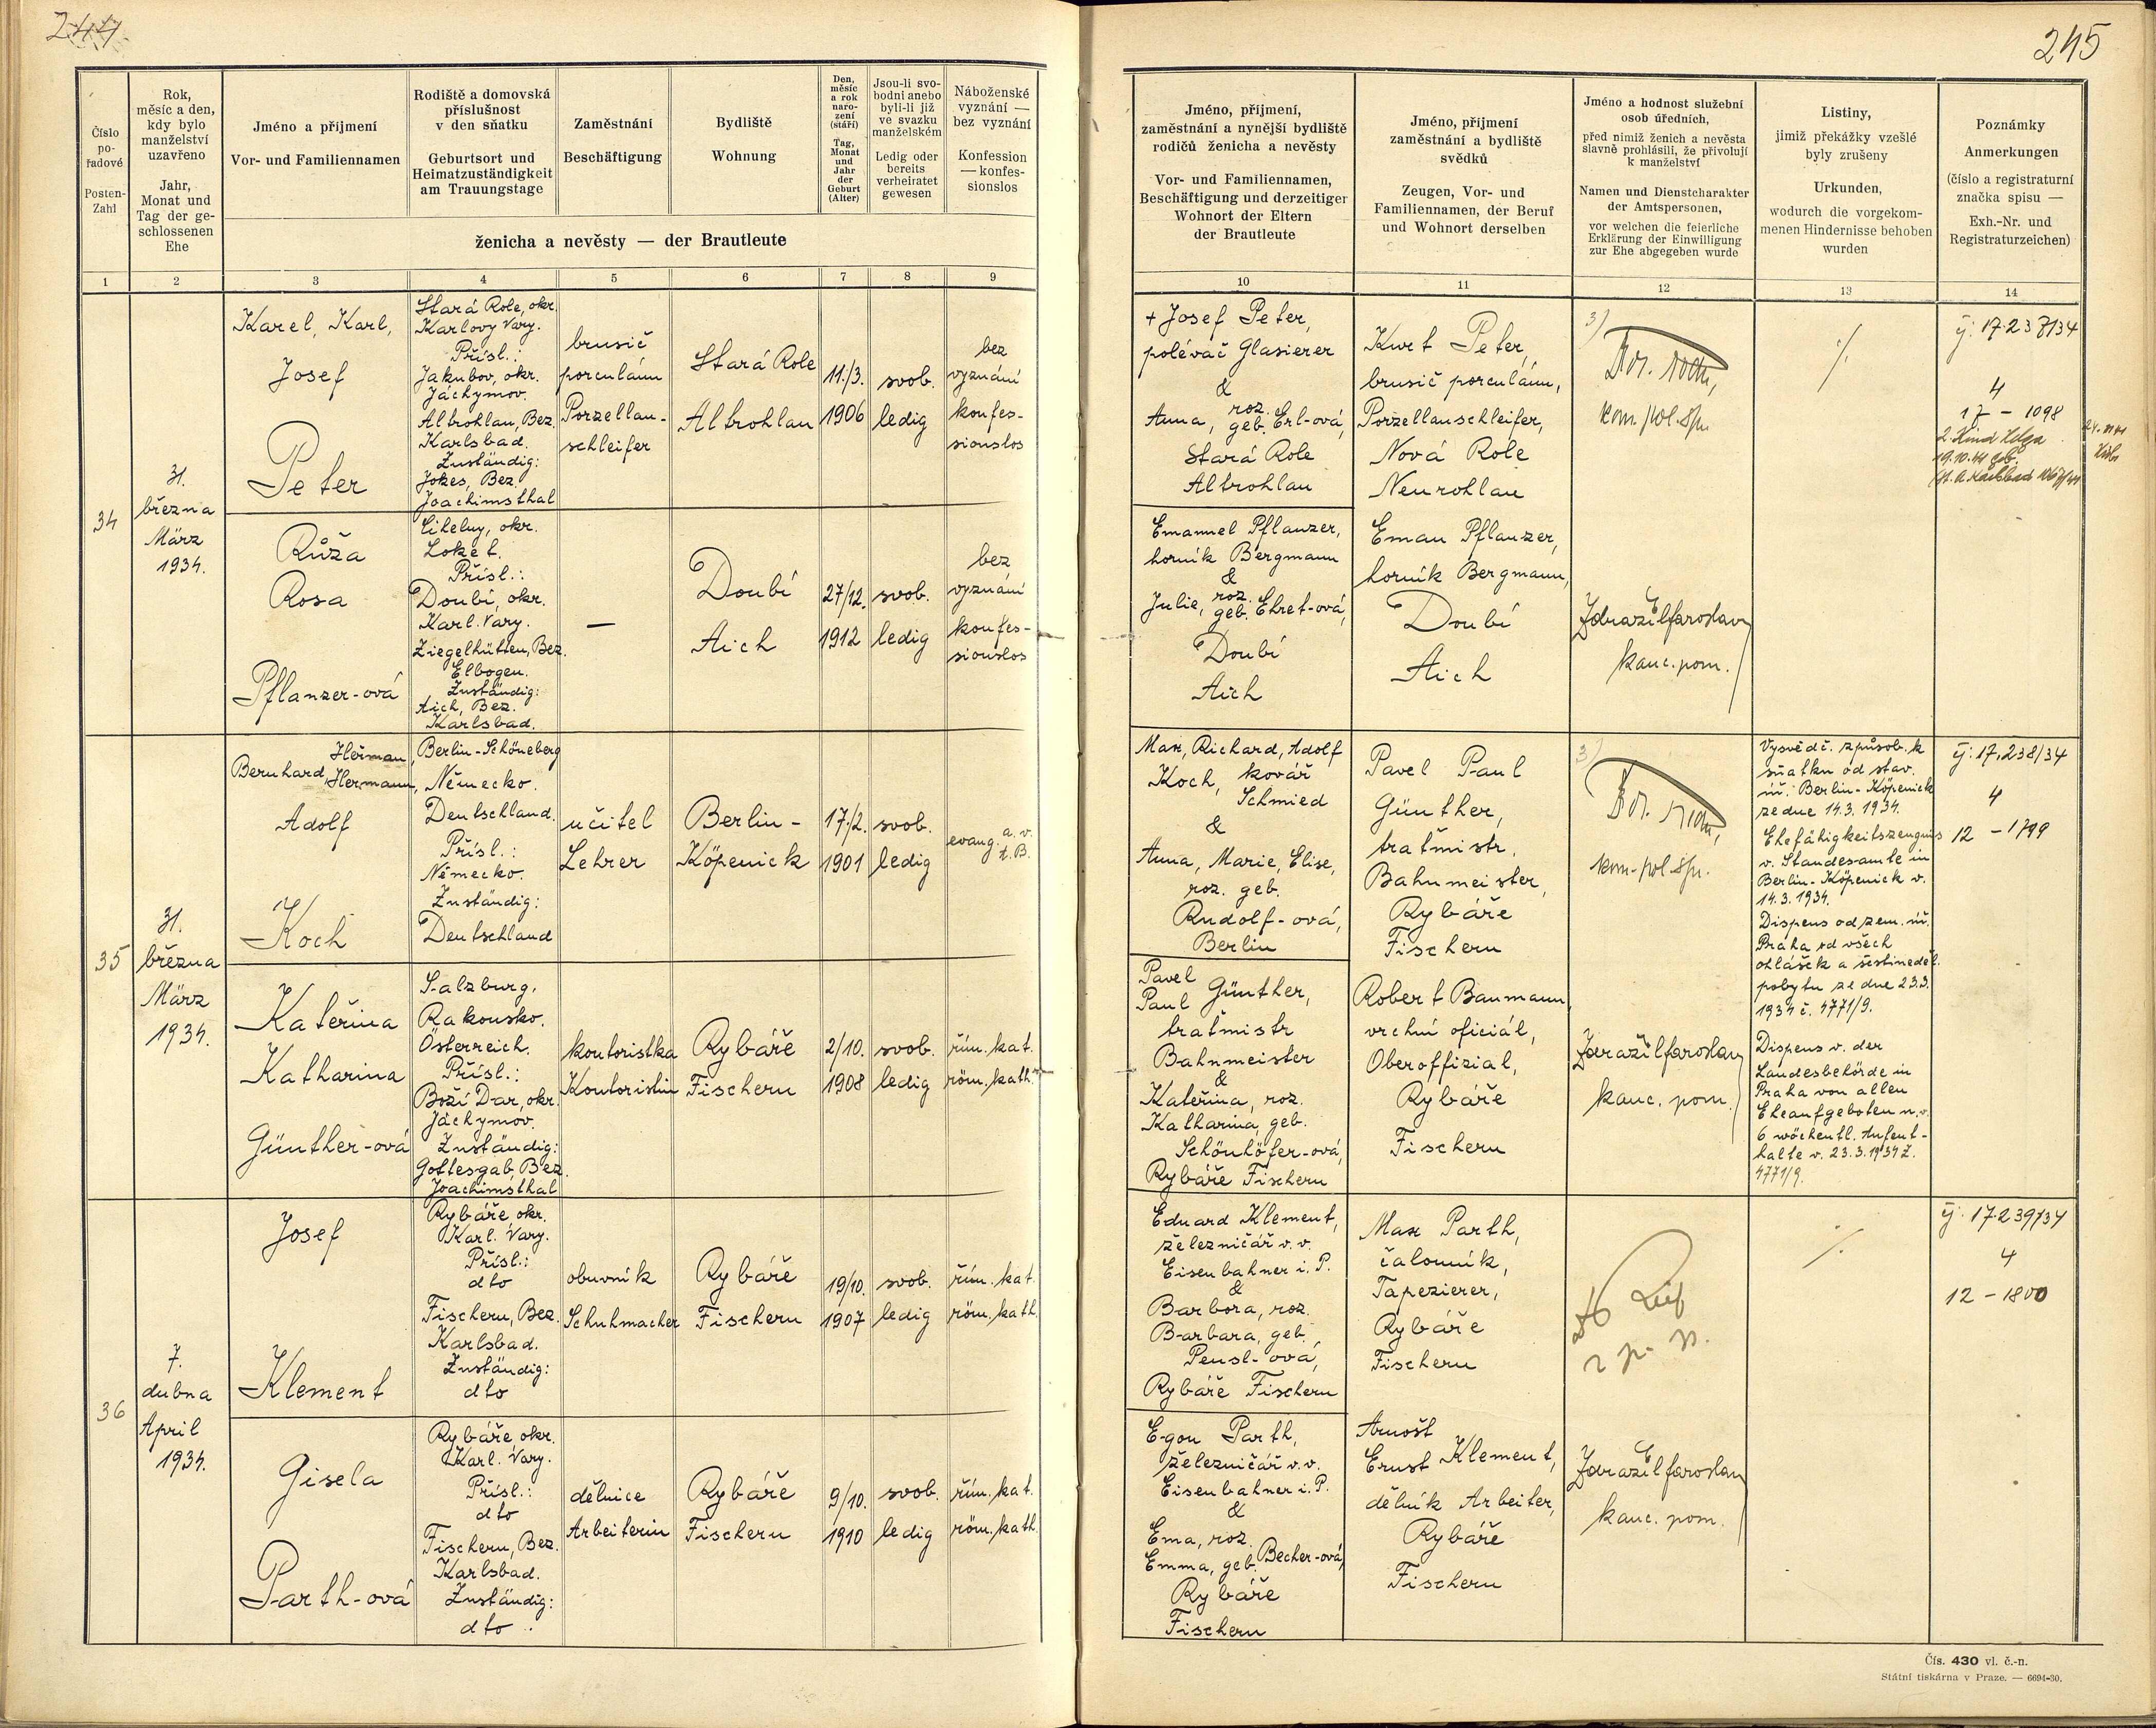 244
245
Číslo
po-
řadové
Posten-
Zahl
Rok,
měsíc a den,
kdy bylo
manželství
uzavřeno
Jahr,
Monat und
Tag der ge-
schlossenen
Ehe
Jméno a příjmení
Vor- und Familiennamen
Rodiště a domovská
příslušnost
v den sňatku
Geburtsort und
Heimatzuständigkeit
am Trauungstage
Zaměstnání
Beschäftigung
Bydliště
Wohnung
Den,
měsíc
a rok
naro-
zení
(stáří)
Tag,
Monat
und
Jahr
der
Geburt
(Alter)
Jsou-li svo-
bodni anebo
byli-li již
ve svazku
manželském
Ledig oder
bereits
verheiratet
gewesen
Náboženské
vyznání —
bez vyznání
Konfession
— konfes-
sionslos
ženicha a nevěsty — der Brautleute
1 2 3 4 5 6 7 8 9
Jméno, příjmení,
zaměstnání a nynější bydliště
rodičů ženicha a nevěsty
Vor- und Familiennamen,
Beschäftigung und derzeitiger
Wohnort der Eltern
der Brautleute
Jméno, příjmení
zaměstnání a bydliště
svědků
Zeugen, Vor- und
Familiennamen, der Beruf
und Wohnort derselben
Jméno a hodnost služební
osob úředních,
před nimiž ženich a nevěsta
slavně prohlásili, že přivolují
k manželství
Namen und Dienstcharakter
der Amtspersonen,
vor welchen die feierliche
Erklärung der Einwilligung
zur Ehe abgegeben wurde
Listiny,
jimiž překážky vzešlé
byly zrušeny
Urkunden,
wodurch die vorgekom-
menen Hindernisse behoben
wurden
Poznámky
Anmerkungen
(číslo a registraturní
značka spisu —
Exh.-Nr. und
Registraturzeichen)
10 11 12 13 14
34
31.
března
März
1934.
Karel, Karl,
Josef
Peter
Stará Role, okr.
Karlovy Vary.
Přísl.:
Jakubov, okr.
Jáchymov.
Altrohlau, Bez.
Karlsbad.
Zuständig:
Jokes, Bez.
Joachimsthal
brusič
porculánu
Porzellan-
schleifer
Stará Role
Altrohlau
11./3.
1906
svob.
ledig
bez
vyznání
konfes-
sionslos
+ Josef Peter,
polévač Glasierer
&
Anna, roz. geb. Erl-ová,
Stará Role
Altrohlau
Kurt Peter,
brusič porculánu,
Porzellanschleifer,
Nová Role
Neurohlau
3)
kom. pol. spr.
čj: 17.237/34
4
17 – 1098
2. Kind Helga
19.10.41 geb.
Růža
Rosa
Pflanzer-ová
Cihelny, okr.
Loket.
Přísl.:
Doubí, okr.
Karl. Vary.
Ziegelhütten, Bez.
Elbogen.
Zuständig:
Aich, Bez.
Karlsbad.
—
Doubí
Aich
27/12.
1912
svob.
ledig
bez
vyznání
konfes-
sionslos
Emanuel Pflanzer,
horník Bergmann
&
Julie, roz. geb. Ehret-ová,
Doubí
Aich
Eman Pflanzer,
horník Bergmann,
Doubí
Aich
Zdražil Jaroslav
kanc. pom.
35
31.
března
März
1934.
Heřman,
Bernhard, Hermann,
Adolf
Koch
Berlin-Schöneberg
Německo.
Deutschland.
Přísl.:
Německo.
Zuständig:
Deutschland
učitel
Lehrer
Berlin-
Köpenick
17./2.
1901
svob.
ledig
evang. a. v.
A. B.
Max, Richard, Adolf
Koch, kovář
Schmied
&
Anna, Marie, Elise,
roz. geb.
Rudolf-ová,
Berlin
Pavel Paul
Günther,
traťmistr,
Bahnmeister,
Rybáře
Fischern
3)
kom. pol. spr.
Vysvědč. způsob. k
sňatku od stav.
úř. Berlin-Köpenick
ze dne 14.3.1934.
Ehefähigkeitszeugnis
v. Standesamte in
Berlin-Köpenick v.
14.3.1934.
Dispens od zem. úř.
Praha od všech
ohlášek a šestineděl.
pobytu ze dne 23.3.
1934 č. 4771/9.
Dispens v. der
Landesbehörde in
Praha von allen
Eheaufgeboten u. v.
6 wöchentl. Aufent-
halte v. 23.3.1934 Z.
4771/9.
čj: 17.238/34
4
12 – 1799
Kateřina
Katharina
Günther-ová
Salzburg,
Rakousko.
Österreich.
Přísl.:
Boží Dar, okr.
Jáchymov.
Zuständig:
Gottesgab, Bez.
Joachimsthal
kontoristka
Kontoristin
Rybáře
Fischern
2/10.
1908
svob.
ledig
řím. kat.
röm. kath.
Pavel
Paul Günther,
traťmistr
Bahnmeister
&
Kateřina, roz.
Katharina, geb.
Schönhöfer-ová,
Rybáře Fischern
Robert Baumann,
vrchní oficiál,
Oberoffizial,
Rybáře
Fischern
Zdražil Jaroslav
kanc. pom.
36
7.
dubna
April
1934.
Josef
Klement
Rybáře okr.
Karl. Vary.
Přísl.:
dto
Fischern, Bez.
Karlsbad.
Zuständig:
dto
obuvník
Schuhmacher
Rybáře
Fischern
19/10.
1907
svob.
ledig
řím. kat.
röm. kath.
Eduard Klement,
železničář v. v.
Eisenbahner i. P.
&
Barbora, roz.
Barbara, geb.
Pensl-ová,
Rybáře Fischern
Max Parth,
čalouník,
Tapezierer,
Rybáře
Fischern
čj. 17.239/34
4
12 – 1800
Gisela
Parth-ová
Rybáře okr.
Karl. Vary.
Přísl.:
dto
Fischern, Bez.
Karlsbad.
Zuständig:
dto
dělnice
Arbeiterin
Rybáře
Fischern
9/10.
1910
svob.
ledig
řím. kat.
röm. kath.
Egon Parth,
železničář v. v.
Eisenbahner i. P.
&
Ema, roz.
Emma, geb. Becher-ová,
Rybáře
Fischern
Arnošt
Ernst Klement,
dělník Arbeiter,
Rybáře
Fischern
Zdražil Jaroslav
kanc. pom.
Čís. 430 vl. č.-n.
Státní tiskárna v Praze. — 6694-30.